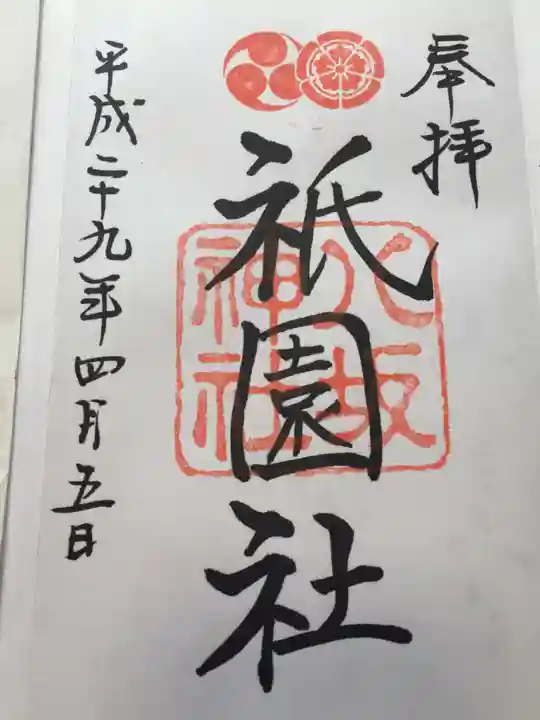 奉拝
祇園社
八坂
神社
平成二十九年四月五日